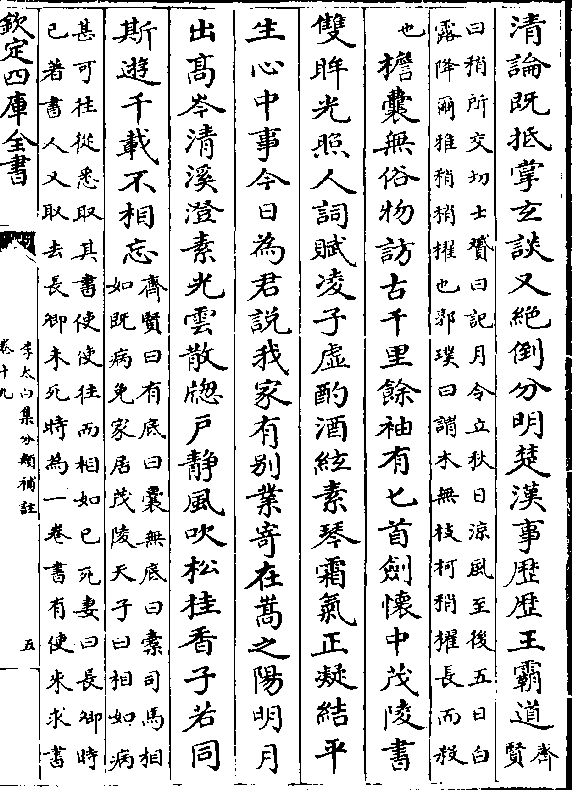 清論既抵掌玄談又絕倒分明楚漢事歷歷王霸道齊賢
曰梢所交切士贇曰記月令立秋日涼風至後五日白
露降爾雅梢梢擢也郭璞曰謂木無枝柯梢擢長而殺
也檐囊無俗物訪古千里餘袖有匕首劍懷中茂陵書
雙眸光照人詞賦凌子虛酌酒絃素琴霜氣正凝結平
生心中事今日為君說我家有别業寄在嵩之陽明月
出髙岑清溪澄素光雲散牕戶靜風吹松桂香子若同
斯遊千載不相忘齊賢曰有底曰囊無底曰橐司馬相
如既病免家居茂陵天子曰相如病
甚可往從悉取其書使使往而相如已死妻曰長卿時
已著書人又取去長卿未死時為一卷書有使來求書
欽定四庫全書
李太白集分類補註
卷十九
五